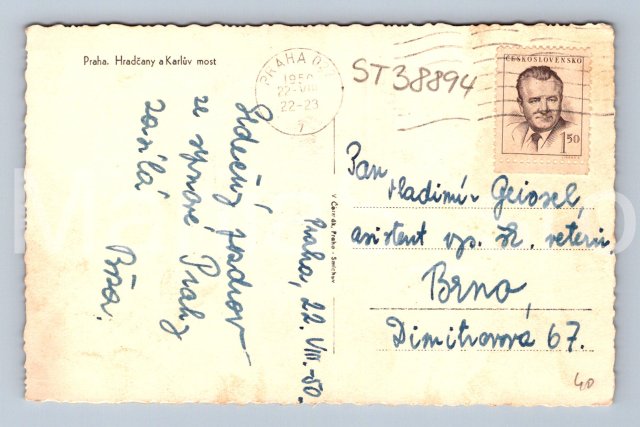 Praha. Hradčany a Karlův most
PRAHA 022
1950
22-VIII
22-23
7
ST38894
ČESKOSLOVENSKO
1.50
Srdečný pozdrav
ze srpnové Prahy
zasílá
Praha, 22. VIII. 50.
V. Čermák, Praha - Smíchov
Pan
Vladimír Geissel,
asistent vys. šk. veterin.
Brno,
Dimitrovova 67.
40